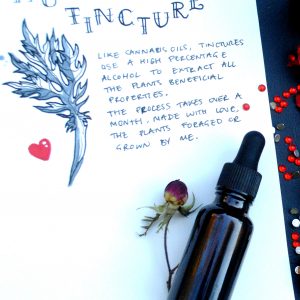 TINCTURE
LIKE CANNABIS OILS, TINCTURES
USE A HIGH PERCENTAGE
ALCOHOL TO EXTRACT ALL
THE PLANTS BENEFICIAL
PROPERTIES.
THE PROCESS TAKES OVER A
MONTH, MADE WITH LOVE,
THE PLANTS FORAGED OR
GROWN BY ME.